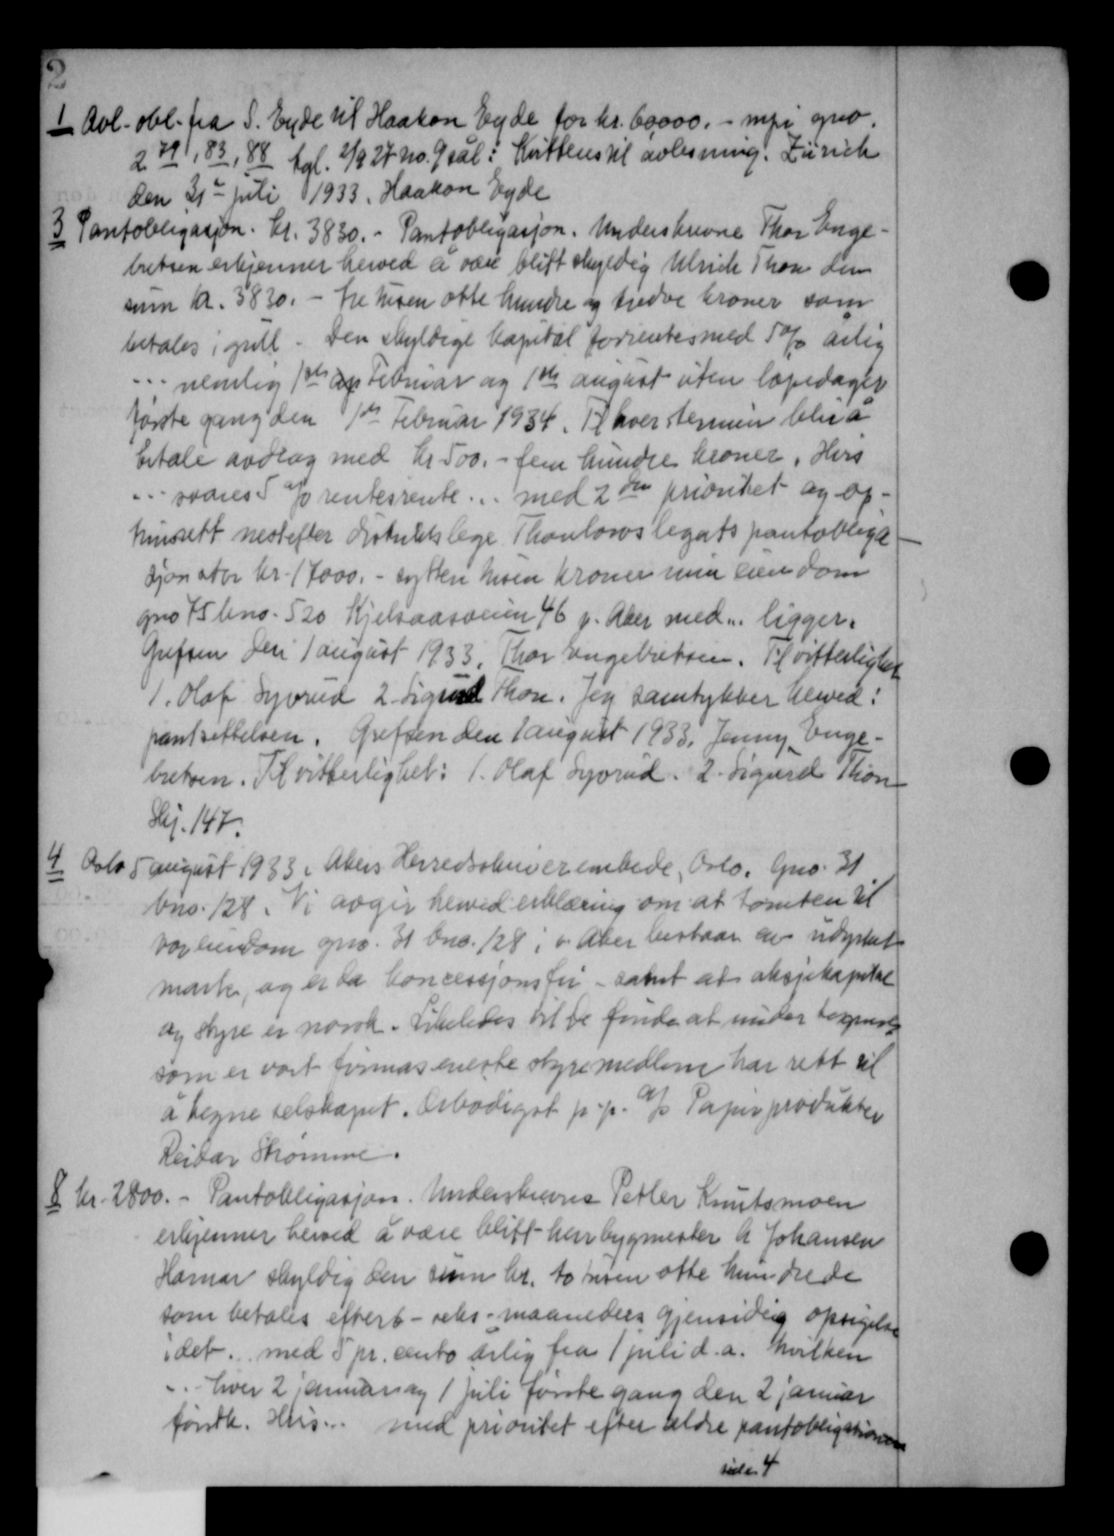 2
1 Avl-obl. fra S. Eyde til Haakon Eyde for kr. 60000.- m.p.i gno.
2 79, 83, 88 tgl. 2/9 27 no. 9 sål: Kvitteres til avlesning. Zürich
den 31te juli 1933. Haakon Eyde
3 Pantobligasjon. kr. 3830.- Pantobligasjon. Underskrevne Thor Enge-
bretsen erkjenner herved å være blitt skyldig Ulrich Thon den
sum kr. 3830.- tre tusen otte hundre og tredve kroner som
betales i gull - Den skyldige kapital forrentes med 5% årlig
... nemlig 1ste Februar og 1ste august uten løpedager
første gang den 1ste Februar 1934. Til hver termin blir å
betale avdrag med kr 500.- fem hundre kroner. Hvis
... svares 5% rentesrente ... med 2den prioritet og op-
trinsrett nestefter distriktslege Thaulows legats pantobliga-
sjon stor kr. 17000.- sytten tusen kroner min eiendom
gno 75 bno. 520 Kjelsaasveien 46 i v. Aker med ... ligger.
Grefsen den 1 august 1933. Thor Engebretsen. Til vitterlighet
1. Olaf Syvrud 2. Sigurd Thon. Jeg samtykker herved i
pantsettelsen. Grefsen den 1 august 1933. Jenny Enge-
bretsen. Til vitterlighet: 1. Olaf Syvrud. 2. Sigurd Thon
Skj. 147.
4 Oslo 5 august 1933. Akers Herredsskriverembede, Oslo. Gno. 31
bno. 128. Vi avgir herved erklæring om at tomten til
vor eiendom gno. 31 bno. 128 i v. Aker bestaar av udyrket
mark, og er da koncessjonsfri - samt at aksjekapital
og styre er norsk. Likeledes vil De finde at undertegnede
som er vort firmas eneste styremedlem har rett til
å tegne selskapet. Ærbødigst p.p. A/S Papirprodukter
Reidar Strømme.
8 kr. 2800.- Pantobligasjon. Underskrevne Petter Knutsmoen
erkjenner herved å være blitt herr bygmester A Johansen
Hamar skyldig den sum kr. to tusen otte hundrede
som betales efter 6 - seks - maaneders gjensidig opsigelse
idet ... med 5 pr. cento årlig fra 1 juli d.a. hvilken
... hver 2 januar og 1 juli første gang den 2 januar
førstk. Hvis ... med prioritet efter ældre pantobligationer
side 4